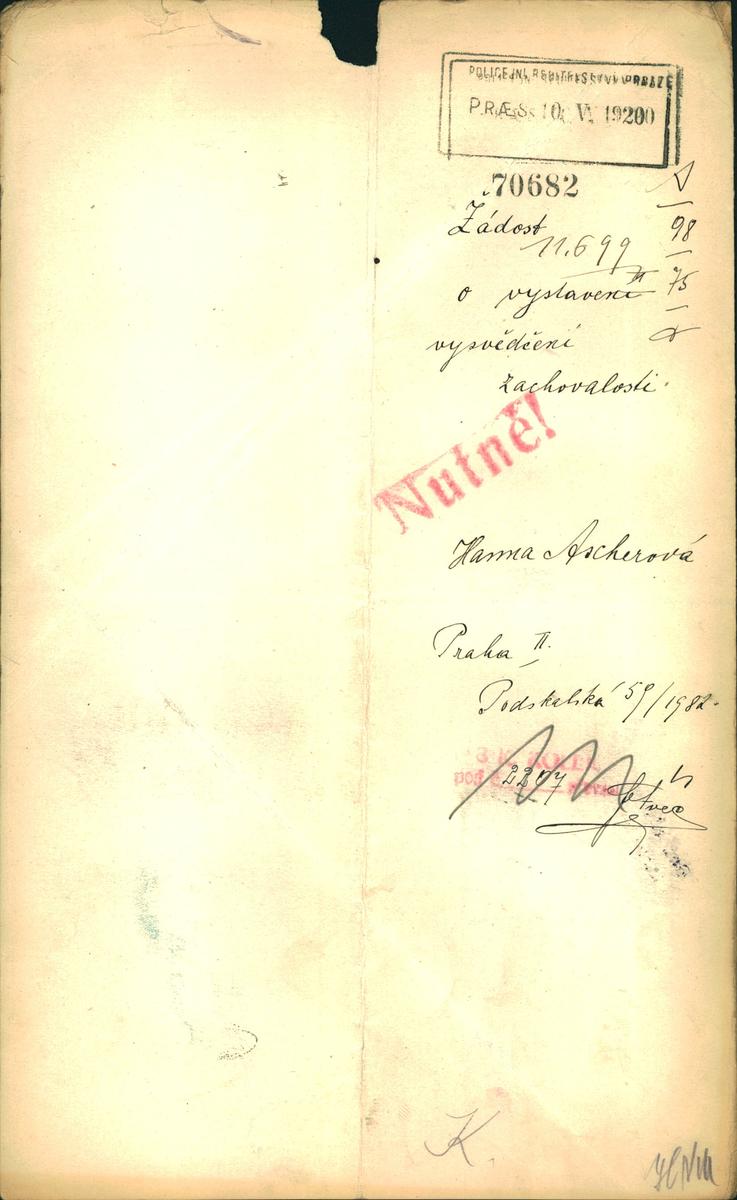 POLICEJNÍ ŘEDITELSTVÍ V PRAZE
PRÆS. 10. V. 1920
70682
98
Žádost
11.699
75
o vystavení
vysvědčení
zachovalosti.
Nutné!
Hanna Ascherová
Praha II.
Podskalská 59/1982.
3 K KOLEK
pod č. 2207
K.